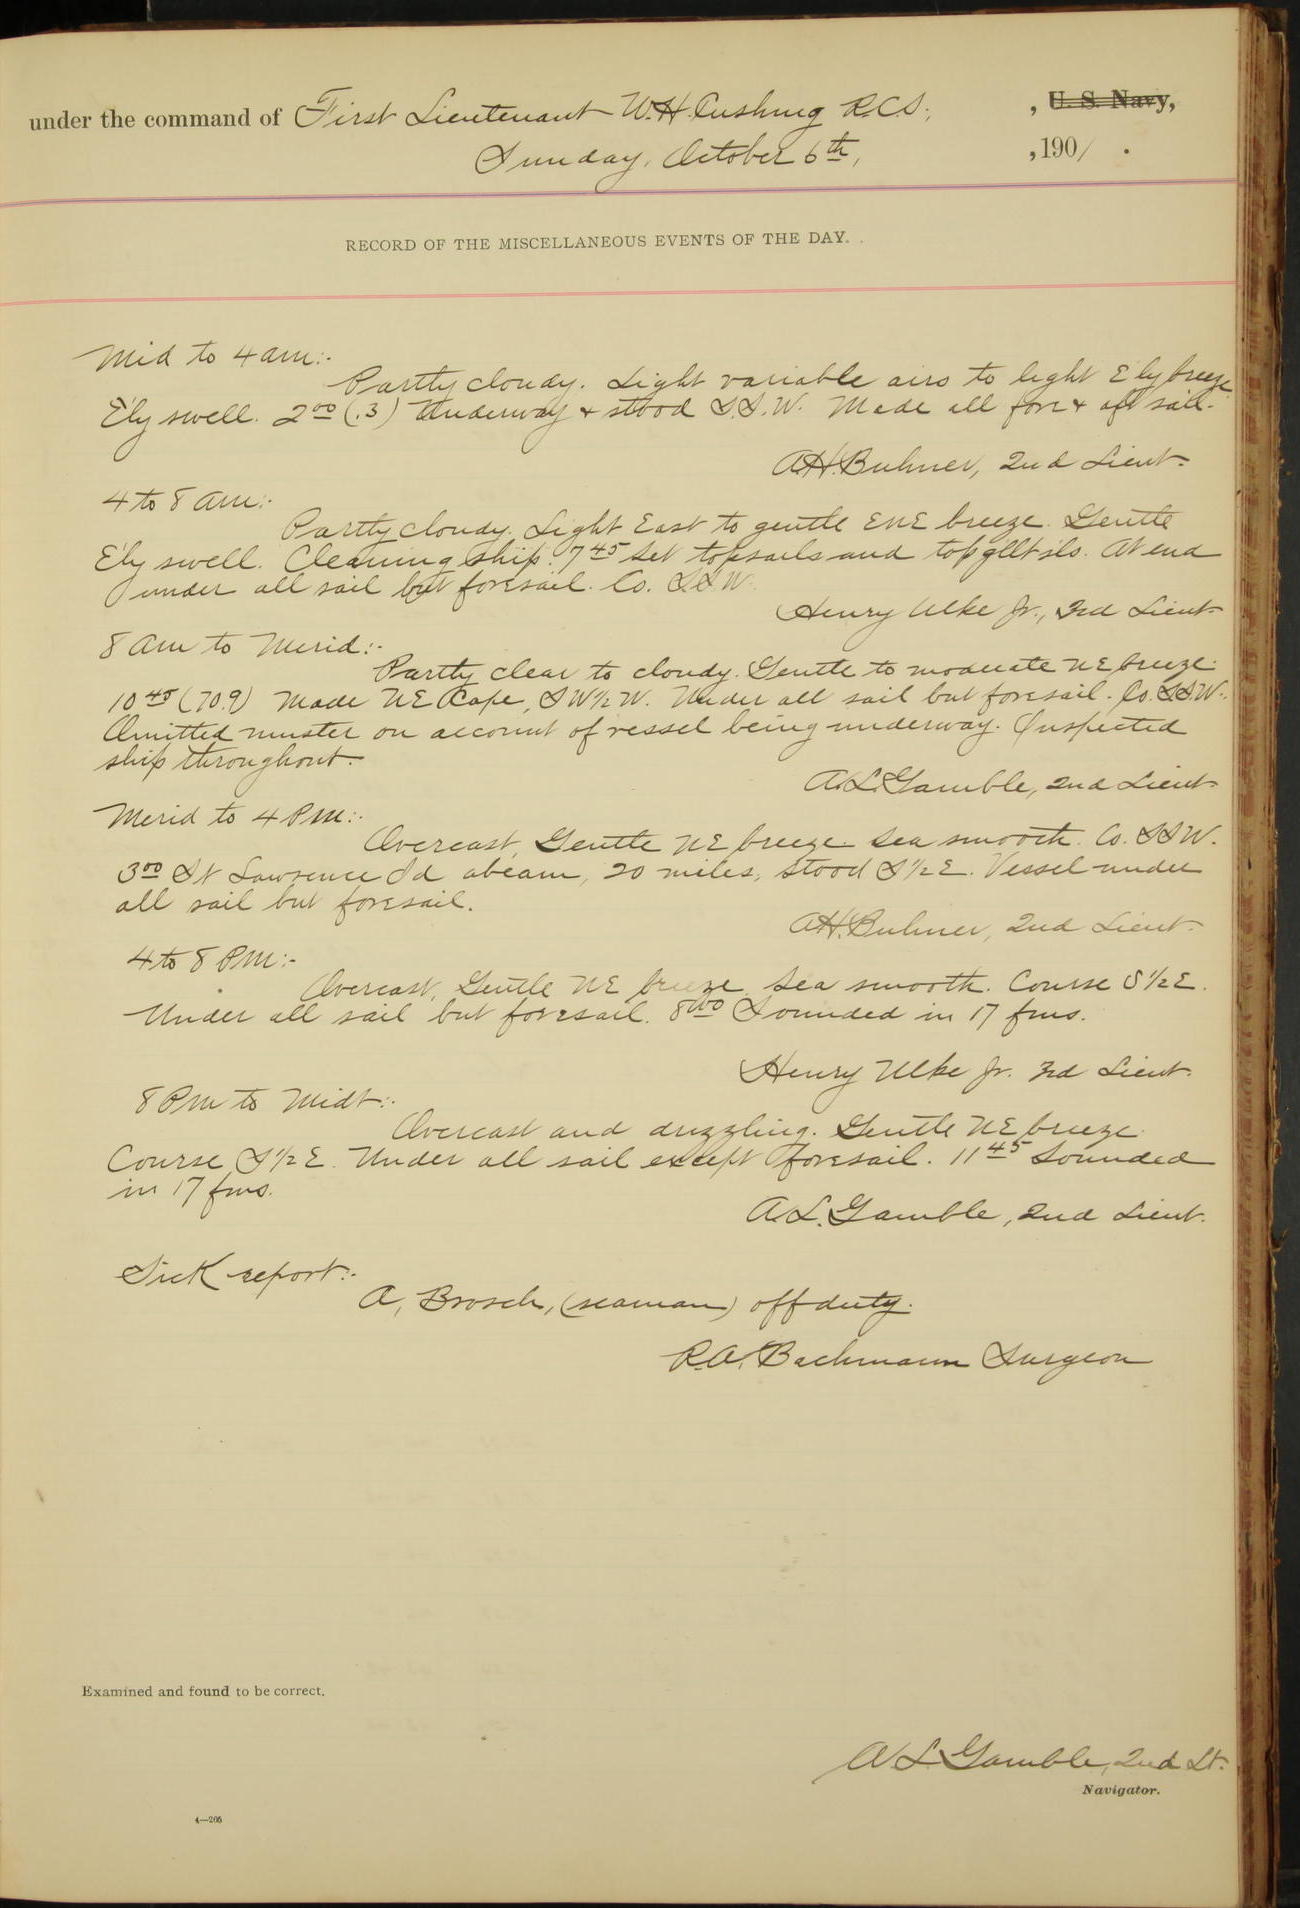 under the command of First Lieutenant W.H. Cushing R.C.S., , U. S. Navy,
Sunday, October 6th, , 1901 .
RECORD OF THE MISCELLANEOUS EVENTS OF THE DAY.
Mid to 4 am:-
Partly cloudy. Light variable airs to light E'ly breeze
E'ly swell. 2 00 (.3) Underway & stood S.S.W. Made all fore & aft sail.
A.H. Buhner, 2nd Lieut.
4 to 8 am:-
Partly cloudy. Light East to gentle ENE breeze. Gentle
E'ly swell. Cleaning ship. 7 45 Set topsails and topgllt sls. At end
under all sail but foresail. Co. SSW.
Henry Ulke Jr., 3rd Lieut
8 am to Merid:-
Partly clear to cloudy. Gentle to moderate NE breeze.
10 45 (70.9) Made NE Cape, SW1/2W. Under all sail but foresail. Co. SSW.
Omitted muster on account of vessel being underway. Inspected
ship throughout.
A.L. Gamble, 2nd Lieut
Merid to 4 PM:-
Overcast, Gentle NE breeze. Sea smooth. Co. SSW.
3 00 St Lawrence Id abeam, 20 miles, stood S1/2E. Vessel under
all sail but foresail.
A.H. Buhner, 2nd Lieut.
4 to 8 PM:-
Overcast, Gentle NE breeze. Sea smooth. Course S1/2E.
Under all sail but foresail. 8 00 Sounded in 17 fms.
Henry Ulke Jr. 3rd Lieut.
8 Pm to Midt:-
Overcast and drizzling. Gentle NE breeze.
Course S1/2E. Under all sail except foresail. 11 45 Sounded
in 17 fms.
A.L. Gamble, 2nd Lieut.
Sick report:-
A, Brosch, (seaman) off duty.
R.A. Bachmann Surgeon
Examined and found to be correct.
A L Gamble, 2nd Lt.
Navigator.
4—205